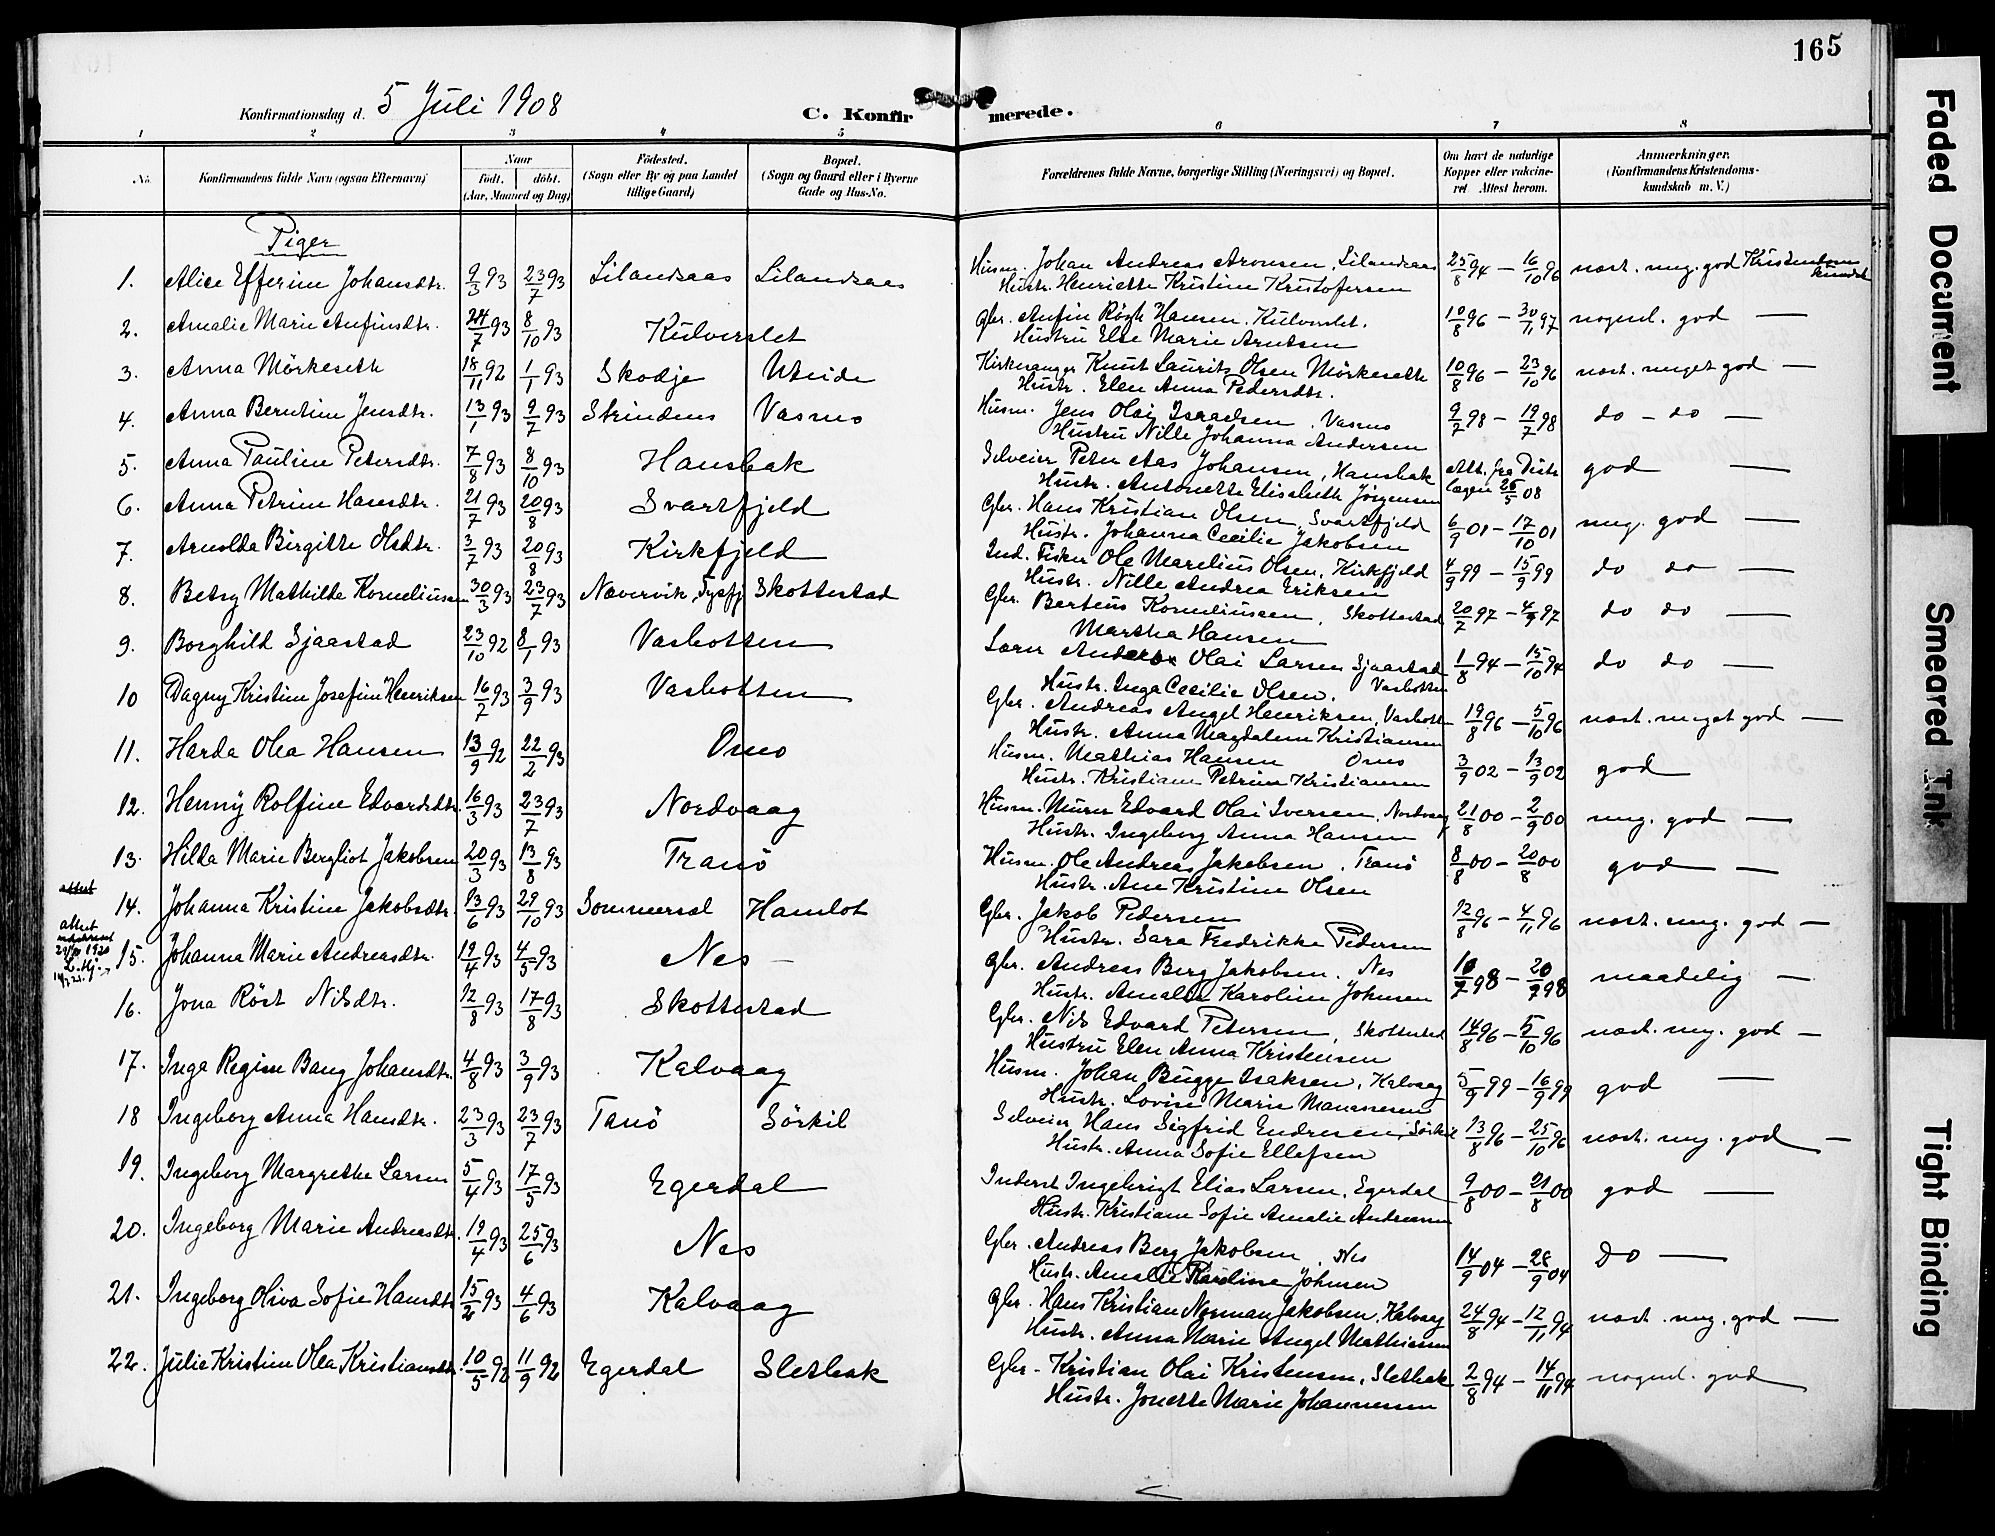 165
Konfirmationsdag d. 5 Juli 1908
C. Konfirmerede.
1 2 3 4 5 6 7 8
No.
Konfirmandens fulde Navn (ogsaa Efternavn)
Naar
födt. döbt.
(Aar, Maaned og Dag)
Födested.
(Sogn eller By og paa Landet
tillige Gaard)
Bopæl.
(Sogn og Gaard eller i Byerne
Gade og Hus-No.
Forældrenes fulde Navne, borgerlige Stilling (Næringsvei) og Bopæl.
Om havt de naturlige
Kopper eller vakcine-
ret Attest herom.
Anmærkninger.
(Konfirmandens Kristendoms-
kundskab m. V.)
Piger
1. Alice Efferine Johansdtr. 9/3 93 23/7 93 Lilandsaas Lilandsaas Husm. Johan Andreas Aronsen, Lilandsaas 25/8 94 – 16/10 96 næst. meg. god Kristendom
Hustr. Henriette Kristine Kristofersen kundsk
2. Amalie Marie Anfinsdtr. 24/7 93 8/10 93 Kulverslet Gbr. Anfin Røgh Hansen, Kulverslet. 10/8 96 – 30/11 97 nogenl. god —
Hustru Else Marie Arntsen
3. Anna Mörkeseth 18/11 92 1/1 93 Skodje Uteide Kirkesanger Knut Laurits Olsen Mörkeseth 10/8 96 – 23/10 96 næst. meget god —
Hustr. Elen Anna Pedersdtr.
4. Anna Berntine Jensdtr. 13/1 93 9/7 93 Strindens Vasmo Husm. Jens Olai Isaacksen, Vasmo 9/7 98 – 19/7 98 do – do —
Hustru Nille Johanna Andersen
5. Anna Pauline Petersdtr. 7/8 93 8/10 93 Hansbak Selveier Peter Aas Johansen, Hansbak Att. fra Distr god —
Hustr. Antonette Elisabeth Jørgensen lægen 26/5 08
6. Anna Petrine Hansdtr. 21/7 93 20/8 93 Svartfjeld Gbr. Hans Kristian Olsen, Svartfjeld 6/9 01 – 17/10 01 meg. god —
Hustr. Johanna Cecilie Jakobsen
7. Arnolda Birgitte Olsdtr. 3/7 93 20/8 93 Kirkfjeld Ind. Fisker Ole Marelius Olsen, Kirkfjeld 4/9 99 – 15/9 99 do do —
Hustr. Nille Andrea Eriksen
8. Betsy Mathilde Korneliussen 30/3 93 23/7 93 Nævervik, Tysfj Skottestad Gbr. Berteus Korneliussen, Skottestad 20/7 97 – 4/9 97 do do —
Martha Hansen
9. Borghild Sjaastad 23/10 92 8/1 93 Vasbotten Lærer Anders Olai Larsen Sjaastad 1/8 94 – 15/10 94 do do —
Hustr. Inga Cecilie Olsen. Vasbotten
10 Dagny Kristine Josefine Henriksen 16/7 93 3/9 93 Vasbotten Gbr. Andreas Angel Henriksen, Vasbott 19/8 96 – 5/10 96 næst. meget god —
Hustr. Anna Magdalena Kristiansen
11. Harda Olea Hansen 13/9 92 22/2 93 Osmo Husm. Mathias Hansen Osmo 3/9 02 – 13/9 02 god
Hustr. Kristiane Petrine Kristiansen
12. Henny Rolfine Edvardsdtr. 16/3 93 23/7 93 Nordvaag Husm. Murer Edvard Olai Iversen, Nordvaag 21/8 00 – 2/9 00 meg. god —
Hustr. Ingeborg Anna Hansen
13. Hilda Marie Bergliot Jakobsen 20/3 93 13/8 93 Tranö Husm. Ole Andreas Jakobsen, Tranö 8/8 00 – 20/8 00 god —
Hustr. Ane Kristine Olsen
attest
14. Johanna Kristine Jakobsdtr. 13/6 93 29/10 93 Sommersel Hamlot Gbr. Jakob Pedersen 12/8 96 – 4/11 96 næst. meg. god —
Hustr. Sara Fredrikke Pedersen
attest
1920
15. Johanna Marie Andreasdtr. 19/4 93 4/5 93 Nes – Gbr. Andreas Berg Jakobsen. Nes 10/7 98 – 20/7 98 maadelig —
Hustr. Amalia Karoline Johnsen
16. Jona Röst Nilsdtr. 12/8 93 17/8 93 Skottestad Gbr. Nils Edvard Petersen, Skottestad 14/8 96 – 5/10 96 næst. meg. god —
Hustru Elen Anna Kristensen
17. Inga Regine Bang Johansdtr. 4/8 93 3/9 93 Kalvaag Husm. Johan Bugge Isaksen, Kalvaag 5/9 99 – 16/9 99 god —
Hustr. Lovise Marie Manassesen
18 Ingeborg Anna Hansdtr. 23/3 93 23/7 93 Tanö Sörkil Selveier Hans Sigfrid Endresen, Sörkil 13/8 96 – 25/10 96 næst. meg. god —
Hustr. Anna Sofie Ellefsen
19. Ingeborg Margrethe Larsen 5/4 93 17/5 93 Egerdal Inderst Ingebrigt Elias Larsen, Egerdal 9/8 00 – 21/8 00 god —
Hustr. Kristiane Sofie Amalie Andreasen
20. Ingeborg Marie Andreasdtr. 19/4 93 25/6 93 Nes Gbr. Andreas Berg Jakobsen, Nes 14/9 04 – 28/9 04 Do —
Hustr. Amalie Karoline Johnsen
21. Ingeborg Oliva Sofie Hansdtr 15/2 93 4/6 93 Kalvaag Gbr. Hans Kristian Norman Jakobsen, Kalvaag 24/8 94 – 12/11 94 næst. meg. god —
Hustr. Anna Marie Angel Mathiesen
22. Julie Kristine Olea Kristiansdtr. 10/5 92 11/9 92 Egerdal Sletbak Gbr. Kristian Olai Kristensen, Sletbak 2/8 94 – 14/11 94 nogenl. god
Hustr. Jonette Marie Johannesen
Faded Document
Smeared Ink
Tight Binding